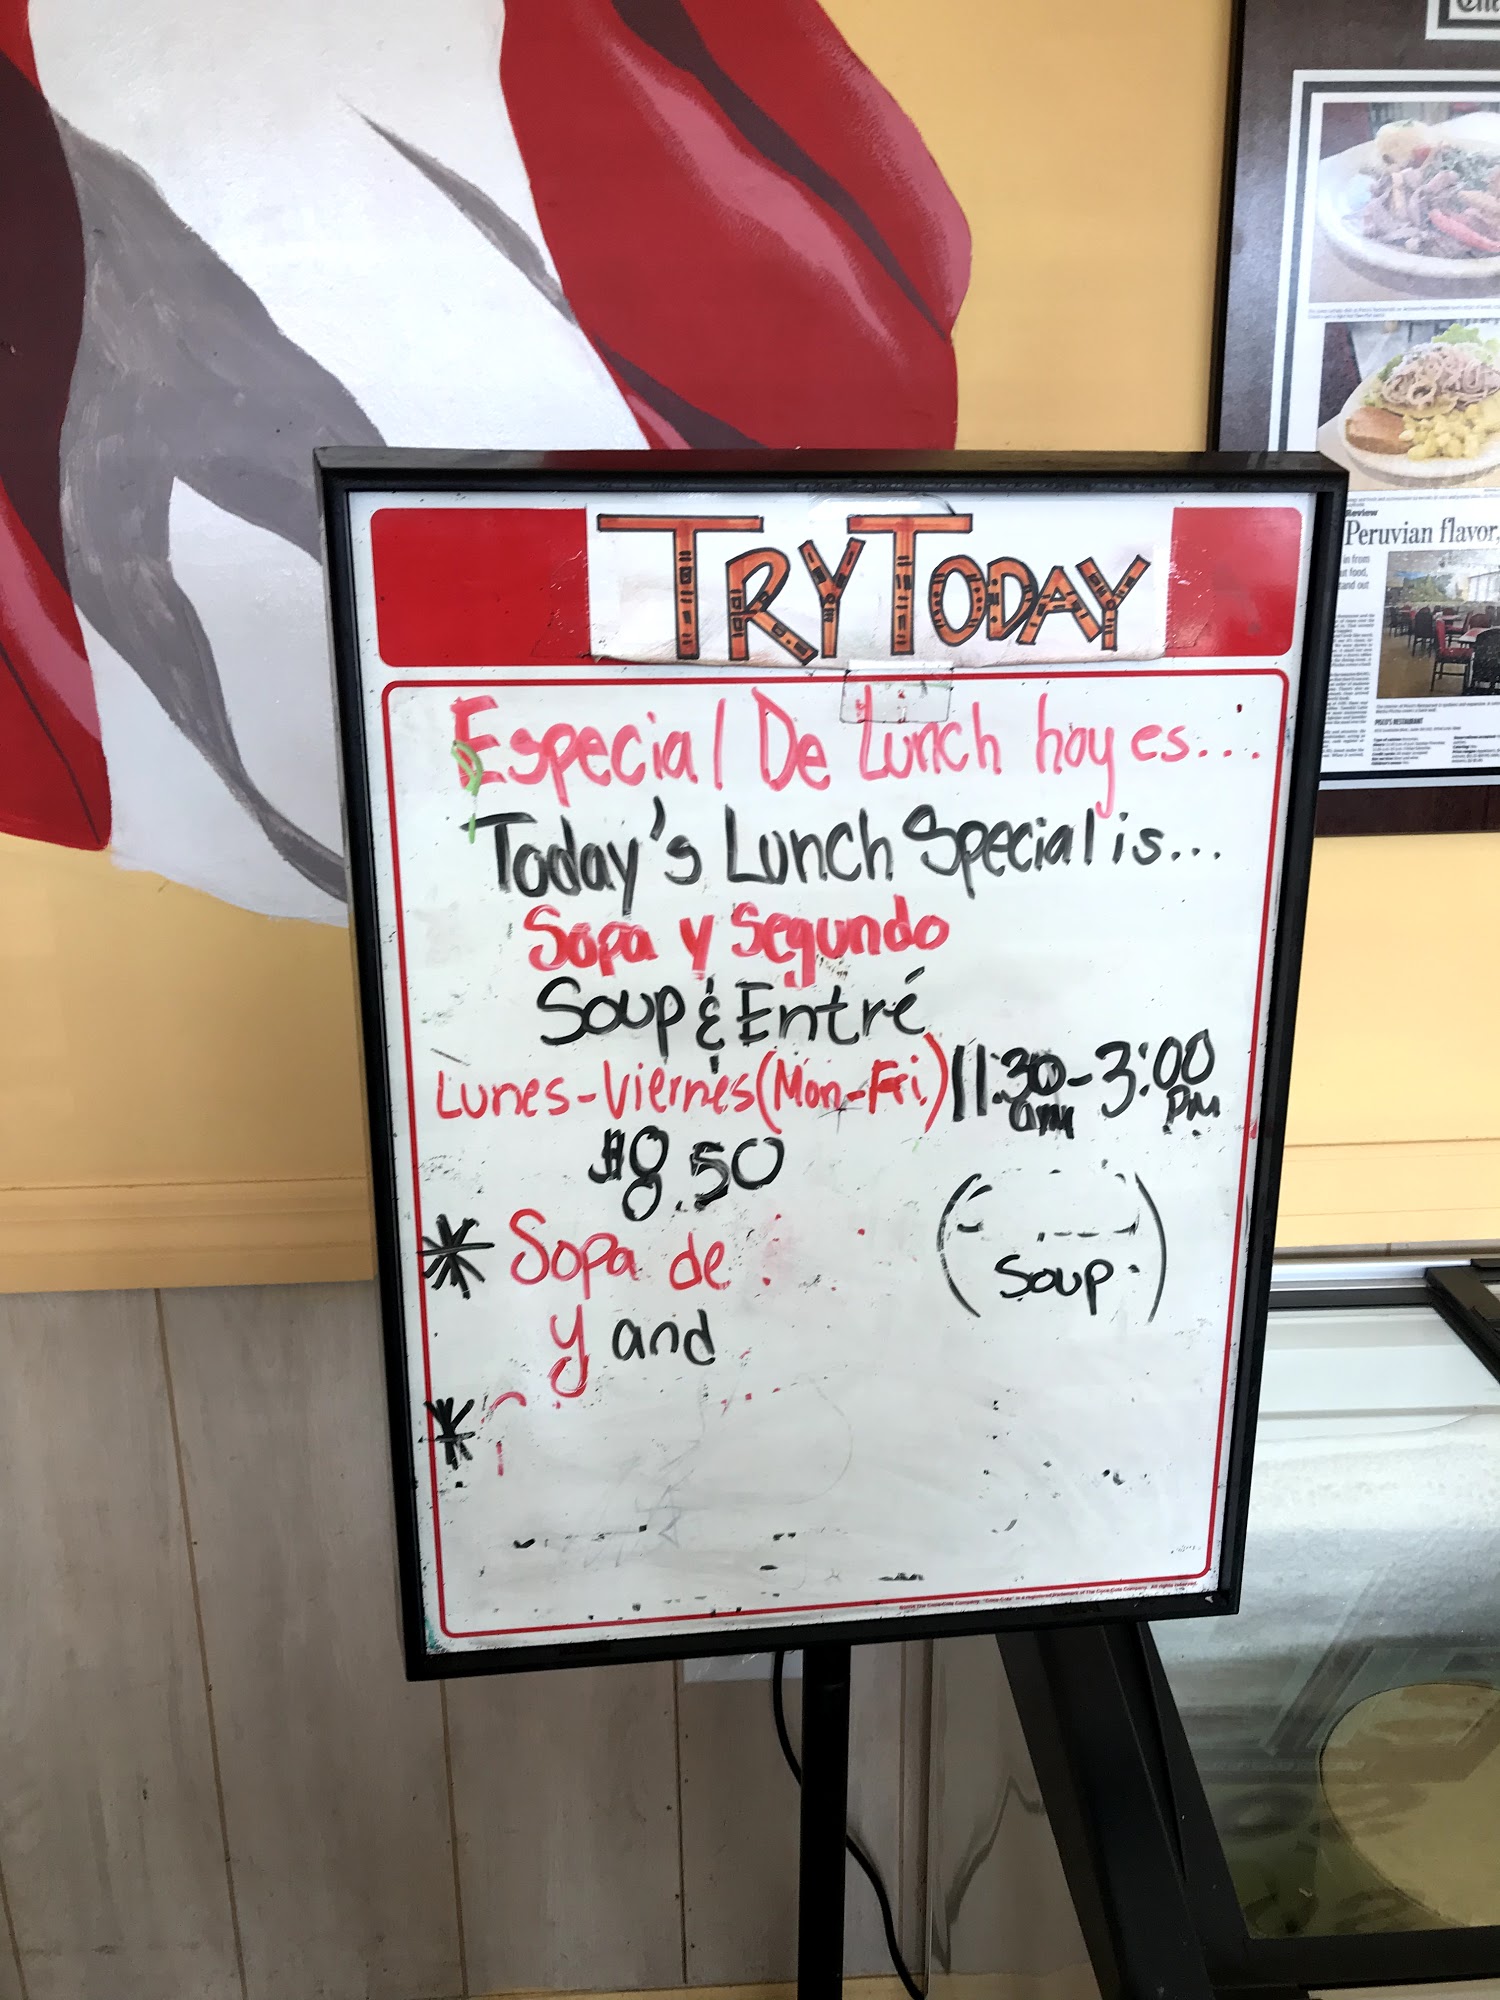 TRY TODAY
Especial De Lunch hoy es...
Today's Lunch Special is...
Sopa y Segundo
Soup & Entré
Lunes-Viernes (Mon-Fri.) 11:30am-3:00pm
$8.50
* Sopa de
(Soup.)
y and
*
Review
Peruvian flavor,
in from
PISCO'S RESTAURANT